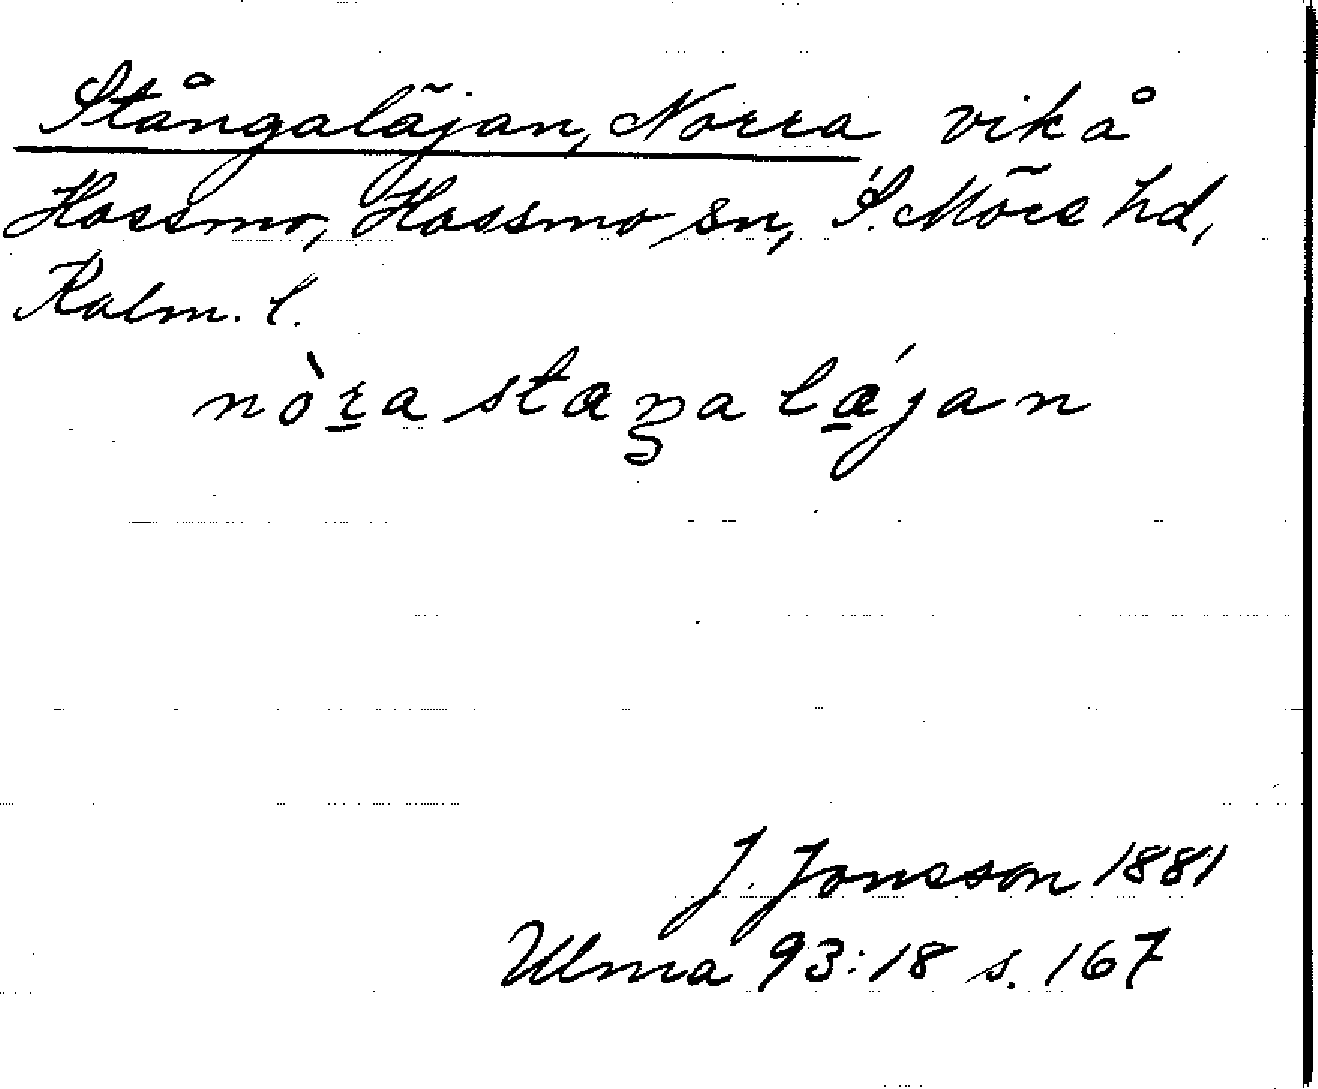 Stångaläjan, Norra vikå
Hossmo, Hossmo sn, S. Möre hd,
Kalm. l.
nòr̲a staŋa lǽ̲jan
J. Jonsson 1881
Ulma 93:18 s. 167